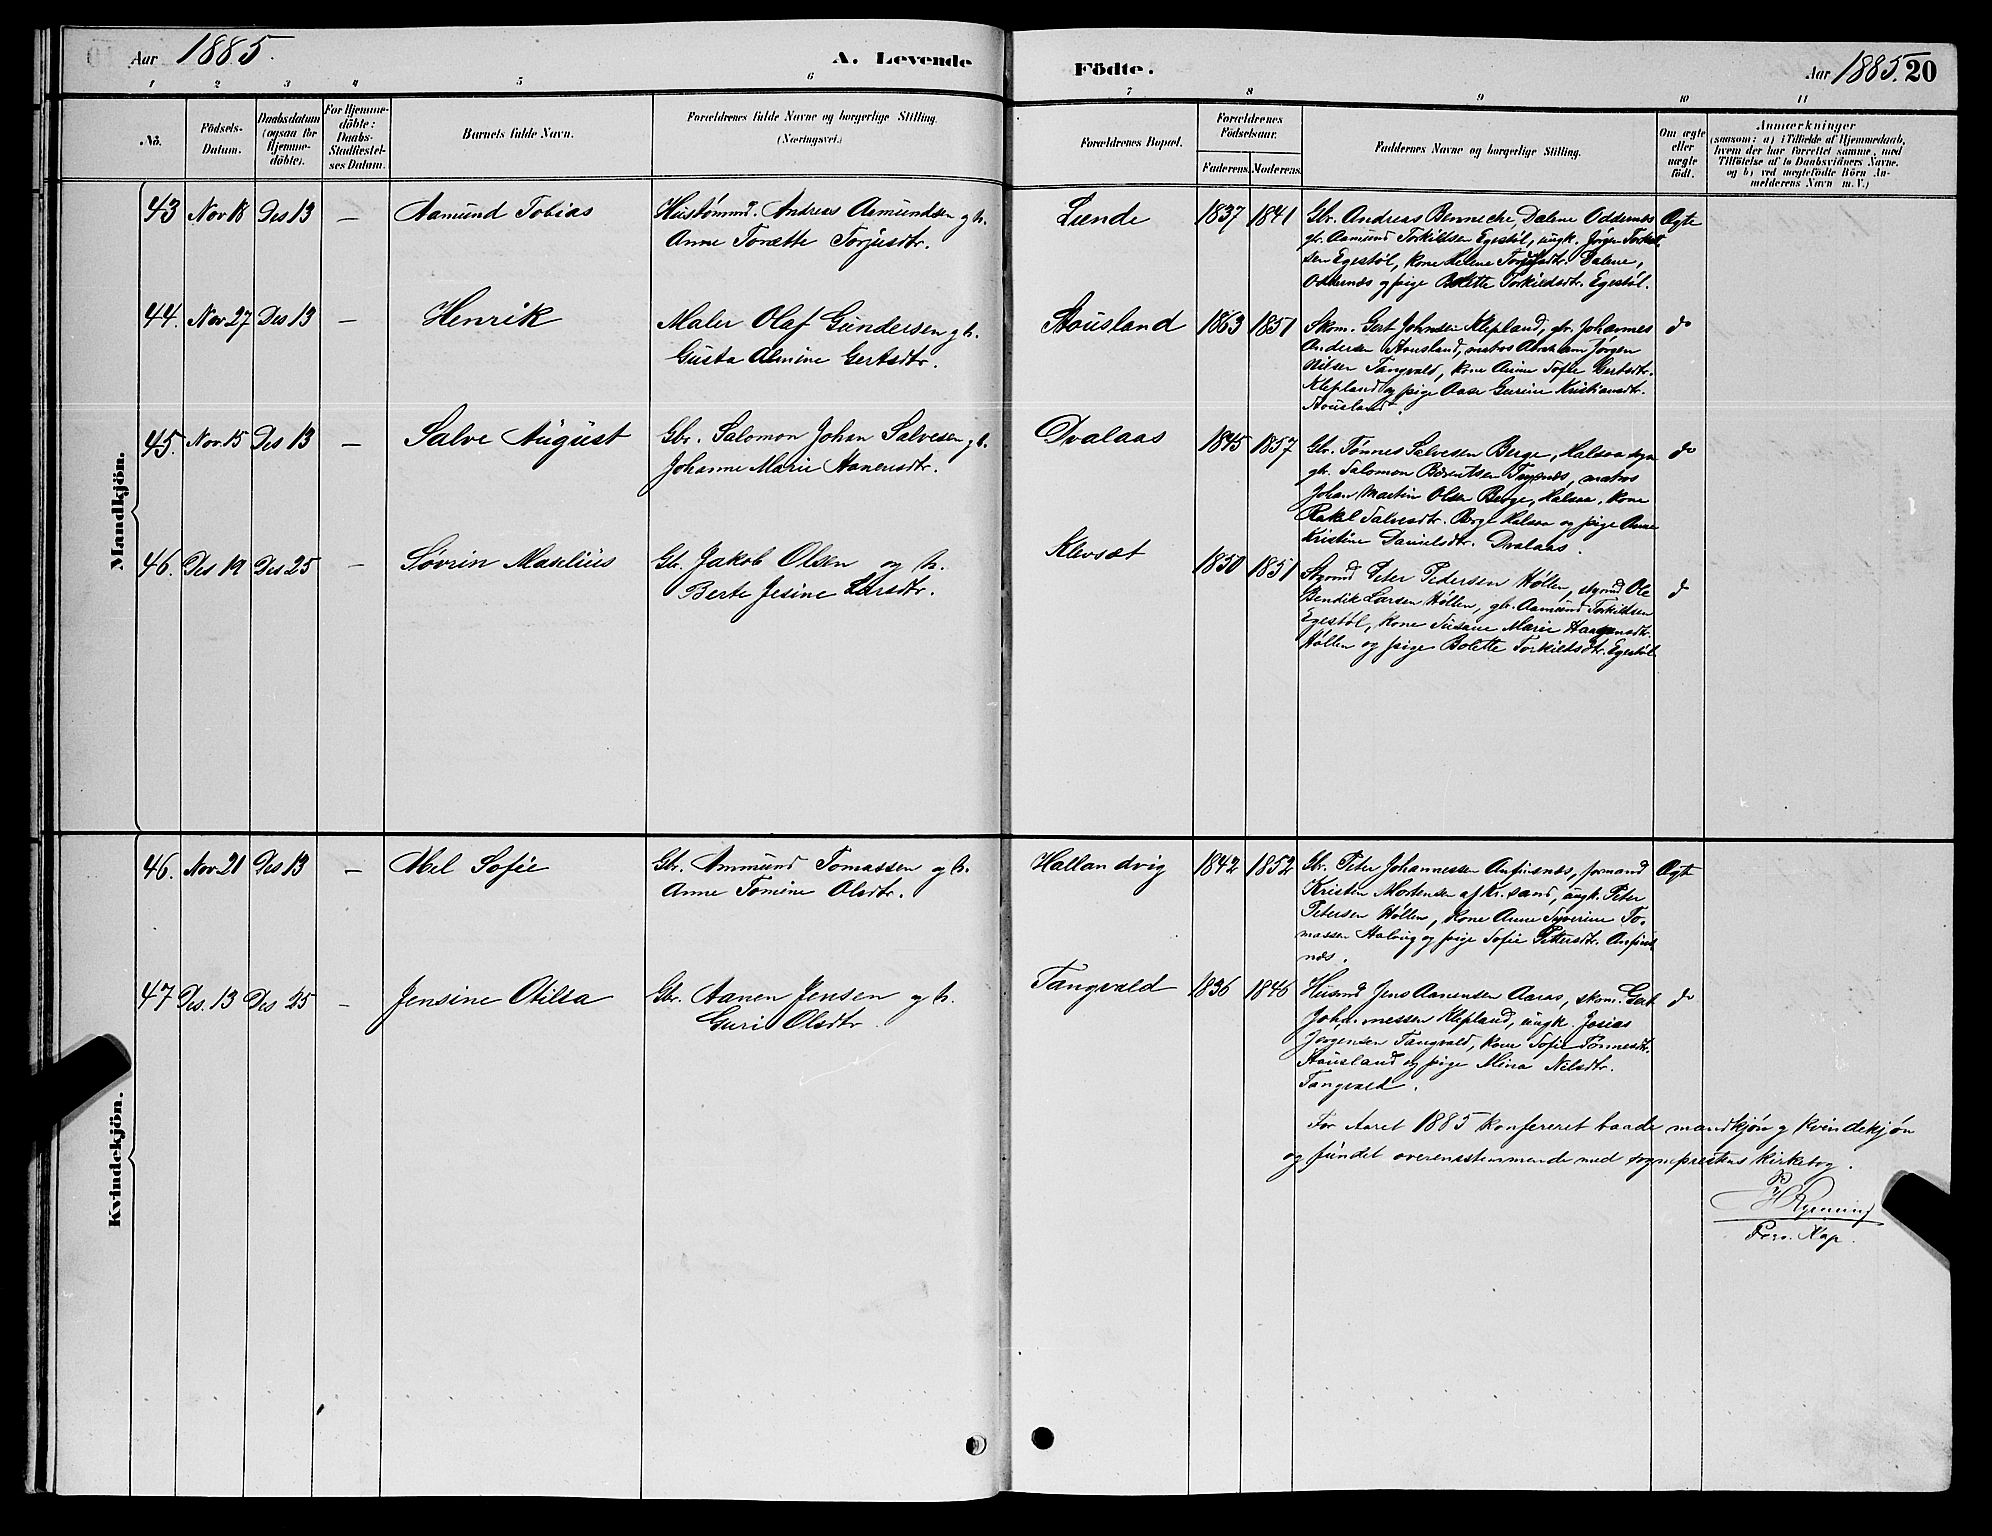 Aar 1885.
A. Levende
Födte.
Aar 1885. 20
1 2 3 4 5 6 7 8 9 10 11
No.
Födsels-
Datum.
Daabsdatum
(ogsaa for
Hjemme-
döbte).
For Hjemme-
döbte:
Daabs-
Stadfæstel-
ses Datum.
Barnets fulde Navn.
Forældrenes fulde Navne og borgerlige Stilling.
(Næringsvei.)
Forældrenes Bopæl.
Forældrenes
Födselsaar.
Faderens. Moderens.
Faddernes Navne og borgerlige Stilling.
Om ægte
eller
uægte
födt.
Anmærkninger
(saasom: a) i Tilfælde af Hjemmedaab,
hvem der har forrettet samme, med
Tilföielse af to Daabsvidners Navne,
og b) ved uægtefödte Börn An-
melderens Navn m. V.)
Mandkjön.
43 Nov 18 Des 13 — Aamund Tobias
Andreas Aamundsen g h.
Anne Torætte Torjusdtr.
Lunde 1837 1841
Gbr. Andreas Bennecke, Dalene Oddernes
gb. Aamund Torkildsen Egestøl, ungk. Jørgen Torkild-
sen Egestøl, kone Helene Dalene,
Oddernæs og pige Bolette Torkildsdtr. Egestøl.
Ægte
44. Nov 27 Des 13 — Henrik
Maler Olaf Gundersen g h.
Gusta Almine Gertsdtr.
Stousland 1863 1851
Skom. Gert Johnsen Klepland, gbr. Johannes
Andersen Stousland, matros Abraham Jørgen
Nilsen Tangvald, kone Anne Sofie Gertsdtr.
Klepland og pige Aase Gurine Kristiansdtr.
Stousland.
do
45. Nov. 15 Des 13 — Salve August
Gbr. Salomon Johan Salvesen g h.
Johanne Marie Hanensdtr.
Dvalaas 1845 1857
Gbr. Tønnes Salvesen Berge, Halsaa sogn
gb. Salomon Berentsen matros
Johan Martin Olsen Berge, Halsaa, kone
Rakel Salvesdtr. Berge Halsaa og pige Anne
Kristine Danielsdtr. Dvalaas.
do
46. Des 19 Des 25 — Søvrin Maselius
Gb. Jakob Olsen og h.
Berte Jesine Larsdtr.
Klevsæt 1850 1851
Peter Pedersen Høllen, Ole
Bendik Larsen Høllen, gb. Aamund Torkildsen
Egestøl, kone Susane Marie
Høllen og pige Bolette Torkildsdtr. Egestøl
do
Kvindekjön.
46. Nov 21 Des 13 — Abel Sofie
Gb. Ammund Tomassen og h.
Anne Tomine Olsdtr.
Hallandvig 1842 1852
Gbr. Peter Johannessen Anfinsnæs, formand
Kristen Mortensen af Kr.sand, ungk. Peter
Petersen Høllen, kone Anne Syverine To-
massen Halvig og pige Sofie Pettersdtr. Anfins
næs.
Ægte
47 Des. 13 Des 25 — Jensine Otilia
Gbr. Aanen Jensen g h.
Guri Olsdtr.
Tangvald 1836 1846
Husmd Jens Aanensen Aaras, skom. Gert
Johannessen Klepland, ungk. Josias
Jørgensen Tangvald, kone Sofie Tønnesdtr.
Stausland og pige Mina Nilsdtr.
Tangvald.
do
For Aaret 1885 konfereret baade mandkjøn g kvindekjøn
og fundet overensstemmende med sogneprestens kirkebog.
Pers. Kap.